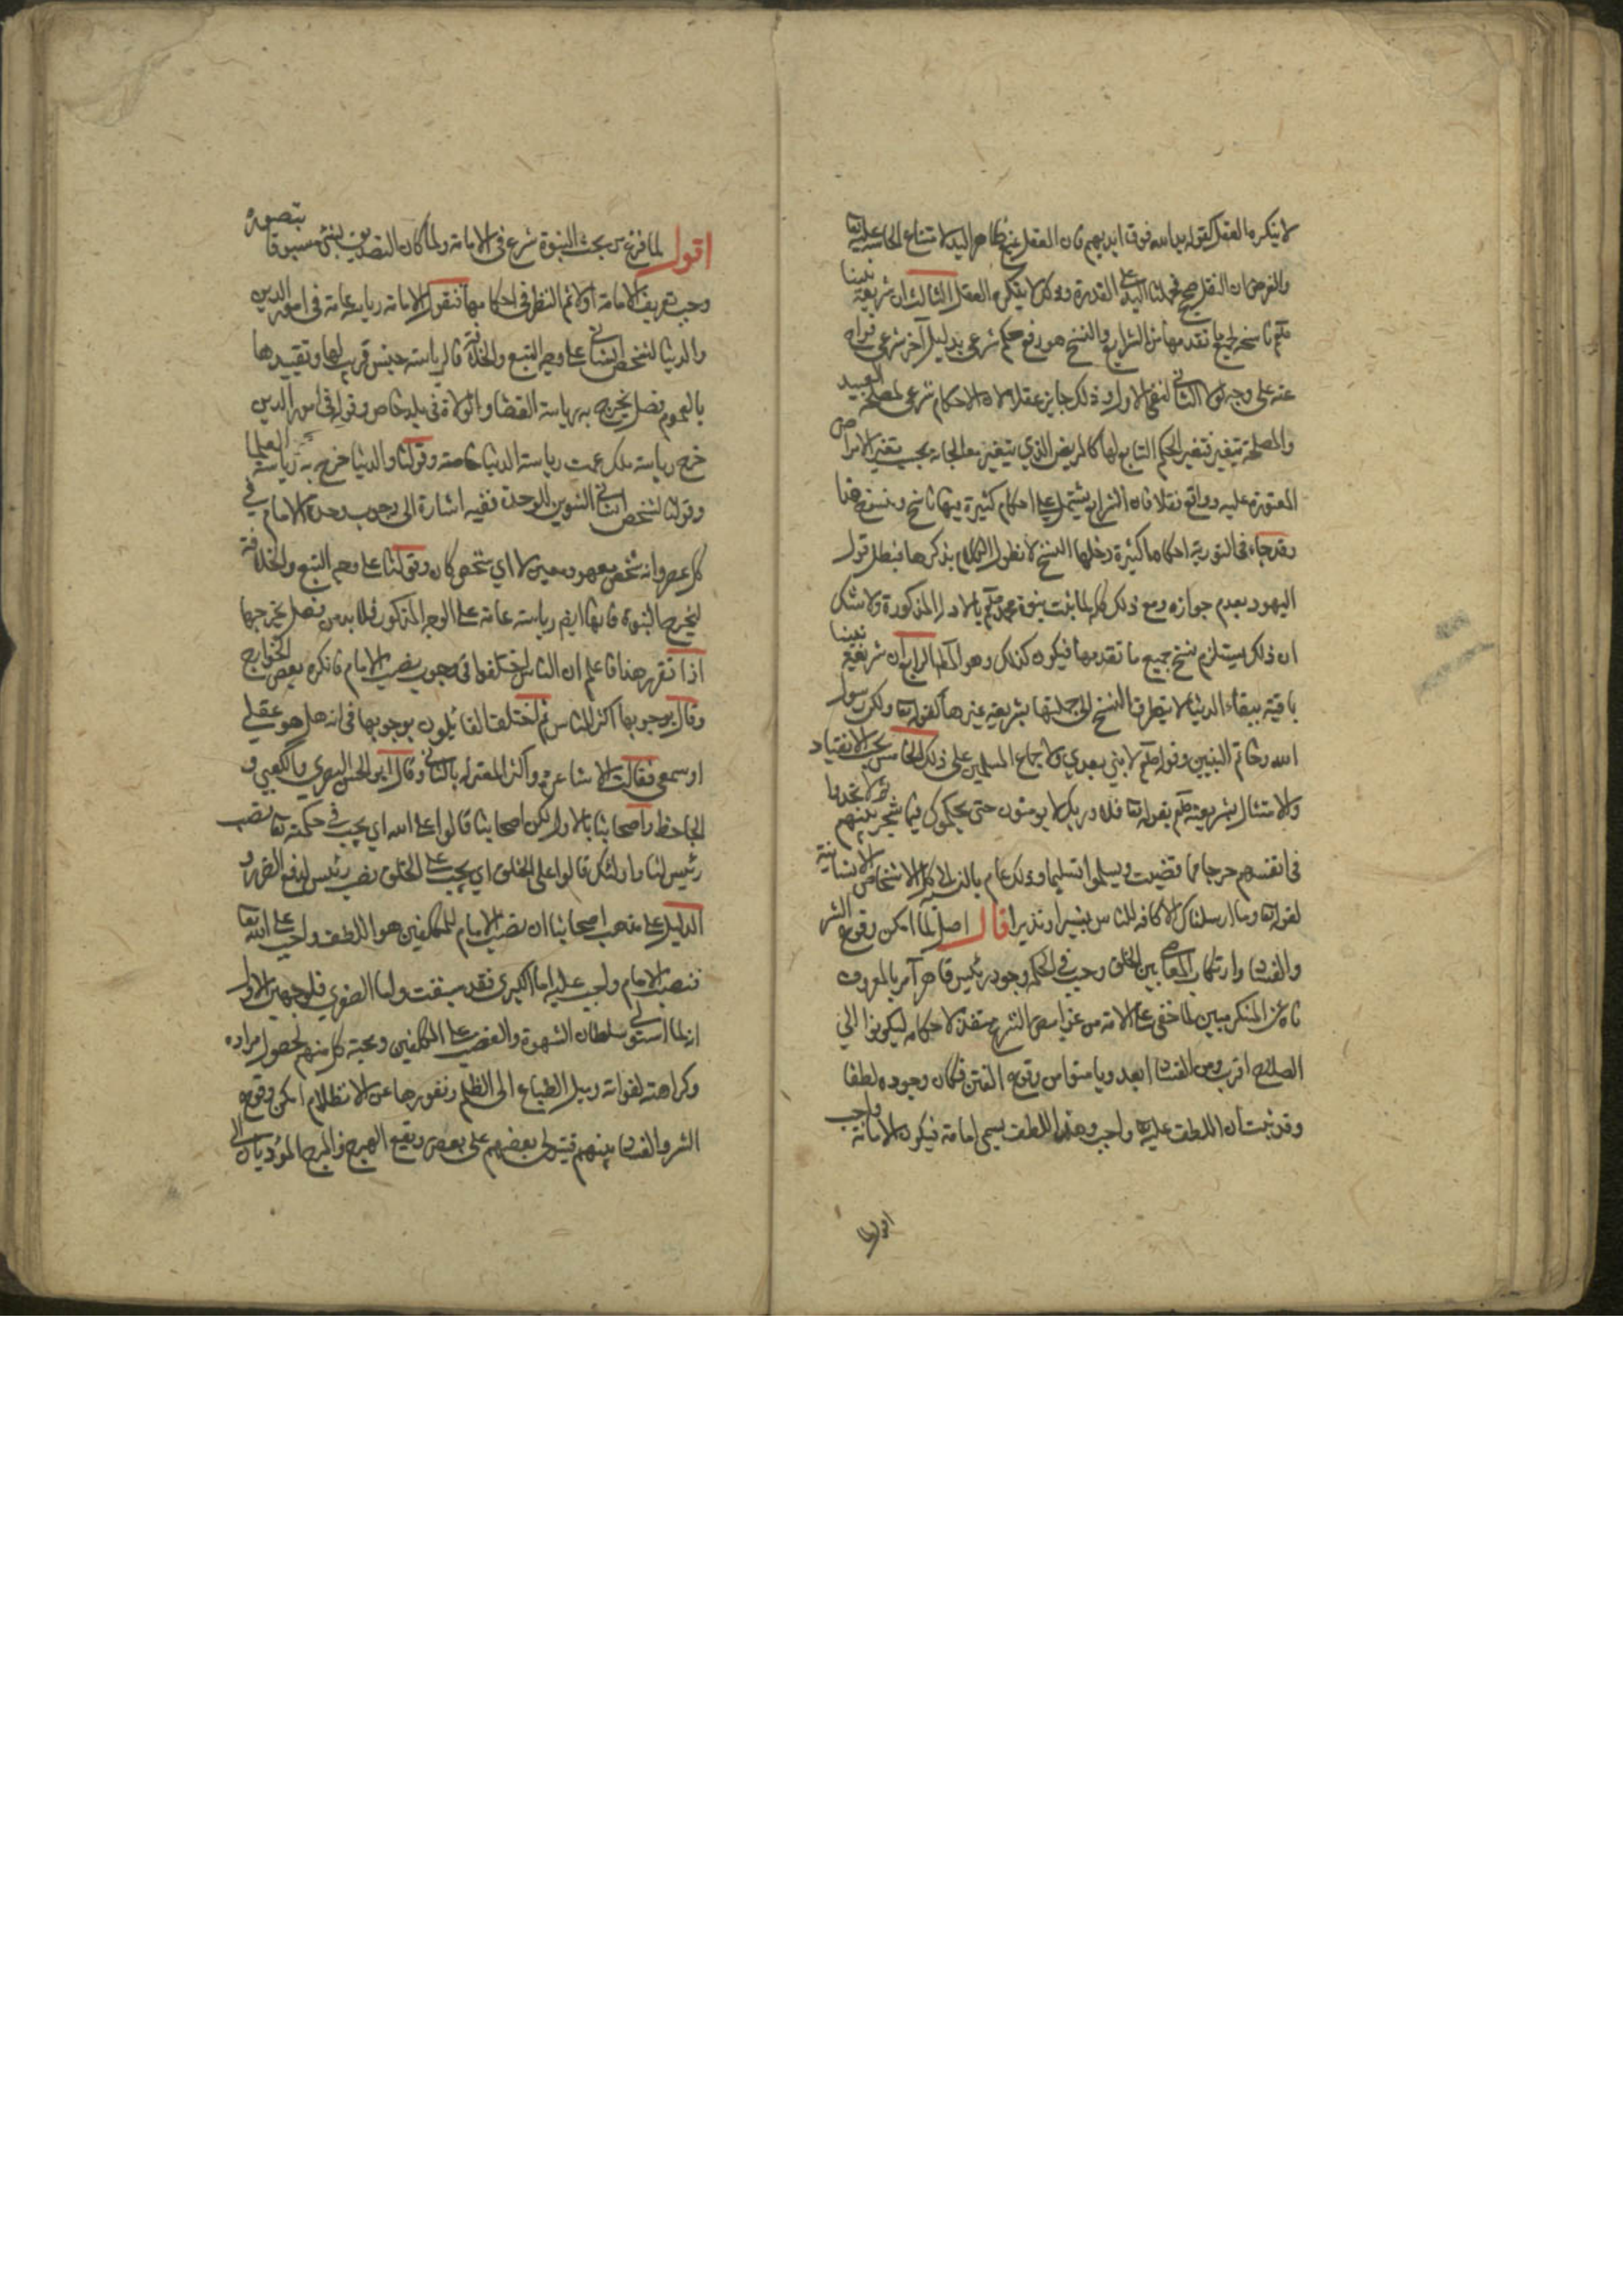 لا ينكره العقل كقوله يد الله فوق ايديهم فان العقل يمنع ظاهر اليد لامتناع الجاسية عليه تعا
والفرض ان النقل صح فحملنا اليد على القدرة وذلك لا ينكره العقل الثالث ان شريعة نبينا
صلعم ناسخة لجميع ما تقدمها من الشرايع والنسخ هو رفع حكم شرعي بدليل آخر شرعي متراخ
عنه على وجه لولا الثاني لبقي الاول وذلك جايز عقلا لان الاحكام شرعى لمصلحة العبيد
والمصلحة تتغير فتغير الحكم التابع لها كالمريض الذي يتغير معالجاته بحسب تغير الامراض
المعتورة عليه وواقع نقلا فان الشرايع يشتمل على احكام كثيرة فيها ناسخ ومنسوخ هنا
وقد جاء فى التورية احكاما كثيرة دخلها النسخ لا نطول الكلام بذكرها فبطل قول
اليهود بعدم جوازه ومع ذلك كله لما ثبت نبوة محمد صلعم بالادلة المذكورة ولا شك
ان ذلك يستلزم نسخ جميع ما تقدمها فيكون كذلك وهو المط الرابع ان شريعة نبينا
باقية ببقاء الدنيا لا يتطرق النسخ الى جملتها بشريعة غيرها لقوله تعا ولكن رسول
الله وخاتم النبيين وقوله صلعم لا نبي بعدي ولاجماع المسلمين على ذلك الخامس يجب الانقياد
والامتثال بشريعته صلعم بقوله تعا فلا وربك لا يومنون حتى يحكموك فيما شجر بينهم ثم لا يجدوا
فى انفسهم حرجا مما قضيت ويسلموا تسليما وذلك عام بالنسبة الى كل الاشخاص الانسانية
لقوله تعا وما ارسلناك الا كافة للناس بشيرا ونذيرا قال اصل لما امكن وقوع الشر
والفساد وارتكاب المعاصي بين الخلق وجب في الحكمة وجود رئيس قاهر آمر بالمعروف
ناه عن المنكر مبين لما خفى على الامة من غوامض الشرع منفذ لاحكامه ليكونوا الي
الصلاح اقرب ومن الفساد ابعد ويامنوا من وقوع الفتن فكان وجوده لطفا
وقد ثبت ان اللطف عليه تعا واجب وهذا اللطف يسمى امامة فيكون الامامة واجب
اقول لما
اقول لما فرغ من بحث النبوة شرع فى الامامة ولما كان التصديق بشئ مسبوقا بتصوره
وجب تعريف الامامة اولا ثم النظر فى احكامها فنقول الامامة رياسة عامة فى امور الدين
والدنيا لشخص انساني على وجه التبع والخلافة فالرياسة جنس قريب لها وتقييدها
بالعموم فصل يخرج به رياسة القضاة والولاة في بلد خاص وقوله في امور الدين
خرج رياسة ملك عمت رياسة الدنيا خاصة وقولنا والدنيا خرج به رياسة العلما
وقولنا لشخص انساني التنوين للوحدة ففيه اشارة الى وجوب وحدة الامام في
كل عصر وانه شخص معهود معين لا اي شخص كان وقولنا على وجه التبع والخلافة
ليخرج النبوة فانها ايضا رياسة عامة على الوجه المذكور فلا بد من فصل يخرجها
اذا تقرر هذا فاعلم ان الناس اختلفوا في وجوب نصب الامام فانكره بعض الخوارج
وقال بوجوبها اكثر الناس ثم اختلفت القائلون بوجوبها فى انه هل هو عقلي
او سمعى فقالت الاشاعرة واكثر المعتزلة بالثاني وقال ابو الحسن البصري والكعبي و
الجاحظ واصحابنا بالاول لكن اصحابنا قالوا على الله اي يجب في حكمته تعا نصب
رئيس لنا واولئك قالوا على الخلق اي يجب على الخلق نصب رئيس لدفع الضرر و
الدليل على مذهب اصحابنا ان نصب الامام للمكلفين هو اللطف واجب على الله تعا
فنصب الامام واجب عليه اما الكبرى فقد سبقت واما الصغري فلوجهين الاول
انه لما استولى سلطان الشهوة والغضب على المكلفين ومحبة كل منهم لحصول مراده
وكراهته لفواته وميل الطباع الى الظلم ونفورها عن الانظلام امكن وقوع
الشر والفساد بينهم فيتولى بعضهم على بعض ويقع الهرج والمرج المؤديان الى